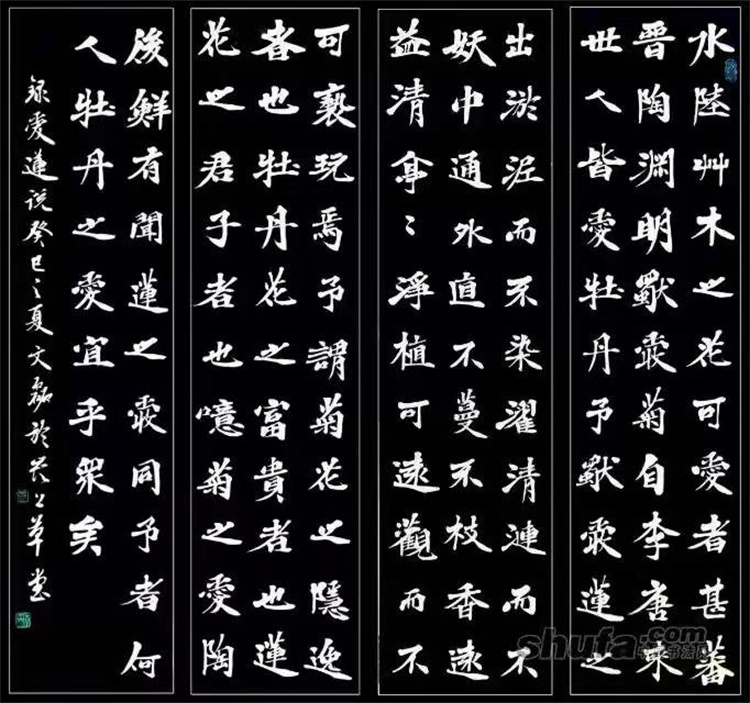 水陸艸木之花可愛者甚蕃
晋陶渊明獨愛菊自李唐来
世人皆愛牡丹予獨愛蓮之
出淤泥而不染濯清漣而不
妖中通外直不蔓不枝香遠
益清亭〻淨植可遠觀而不
可褻玩焉予謂菊花之隱逸
者也牡丹花之富貴者也蓮
花之君子者也噫菊之愛陶
後鮮有聞蓮之愛同予者何
人牡丹之愛宜乎衆矣
録愛蓮说癸巳之夏文磊於草堂
shufa.com